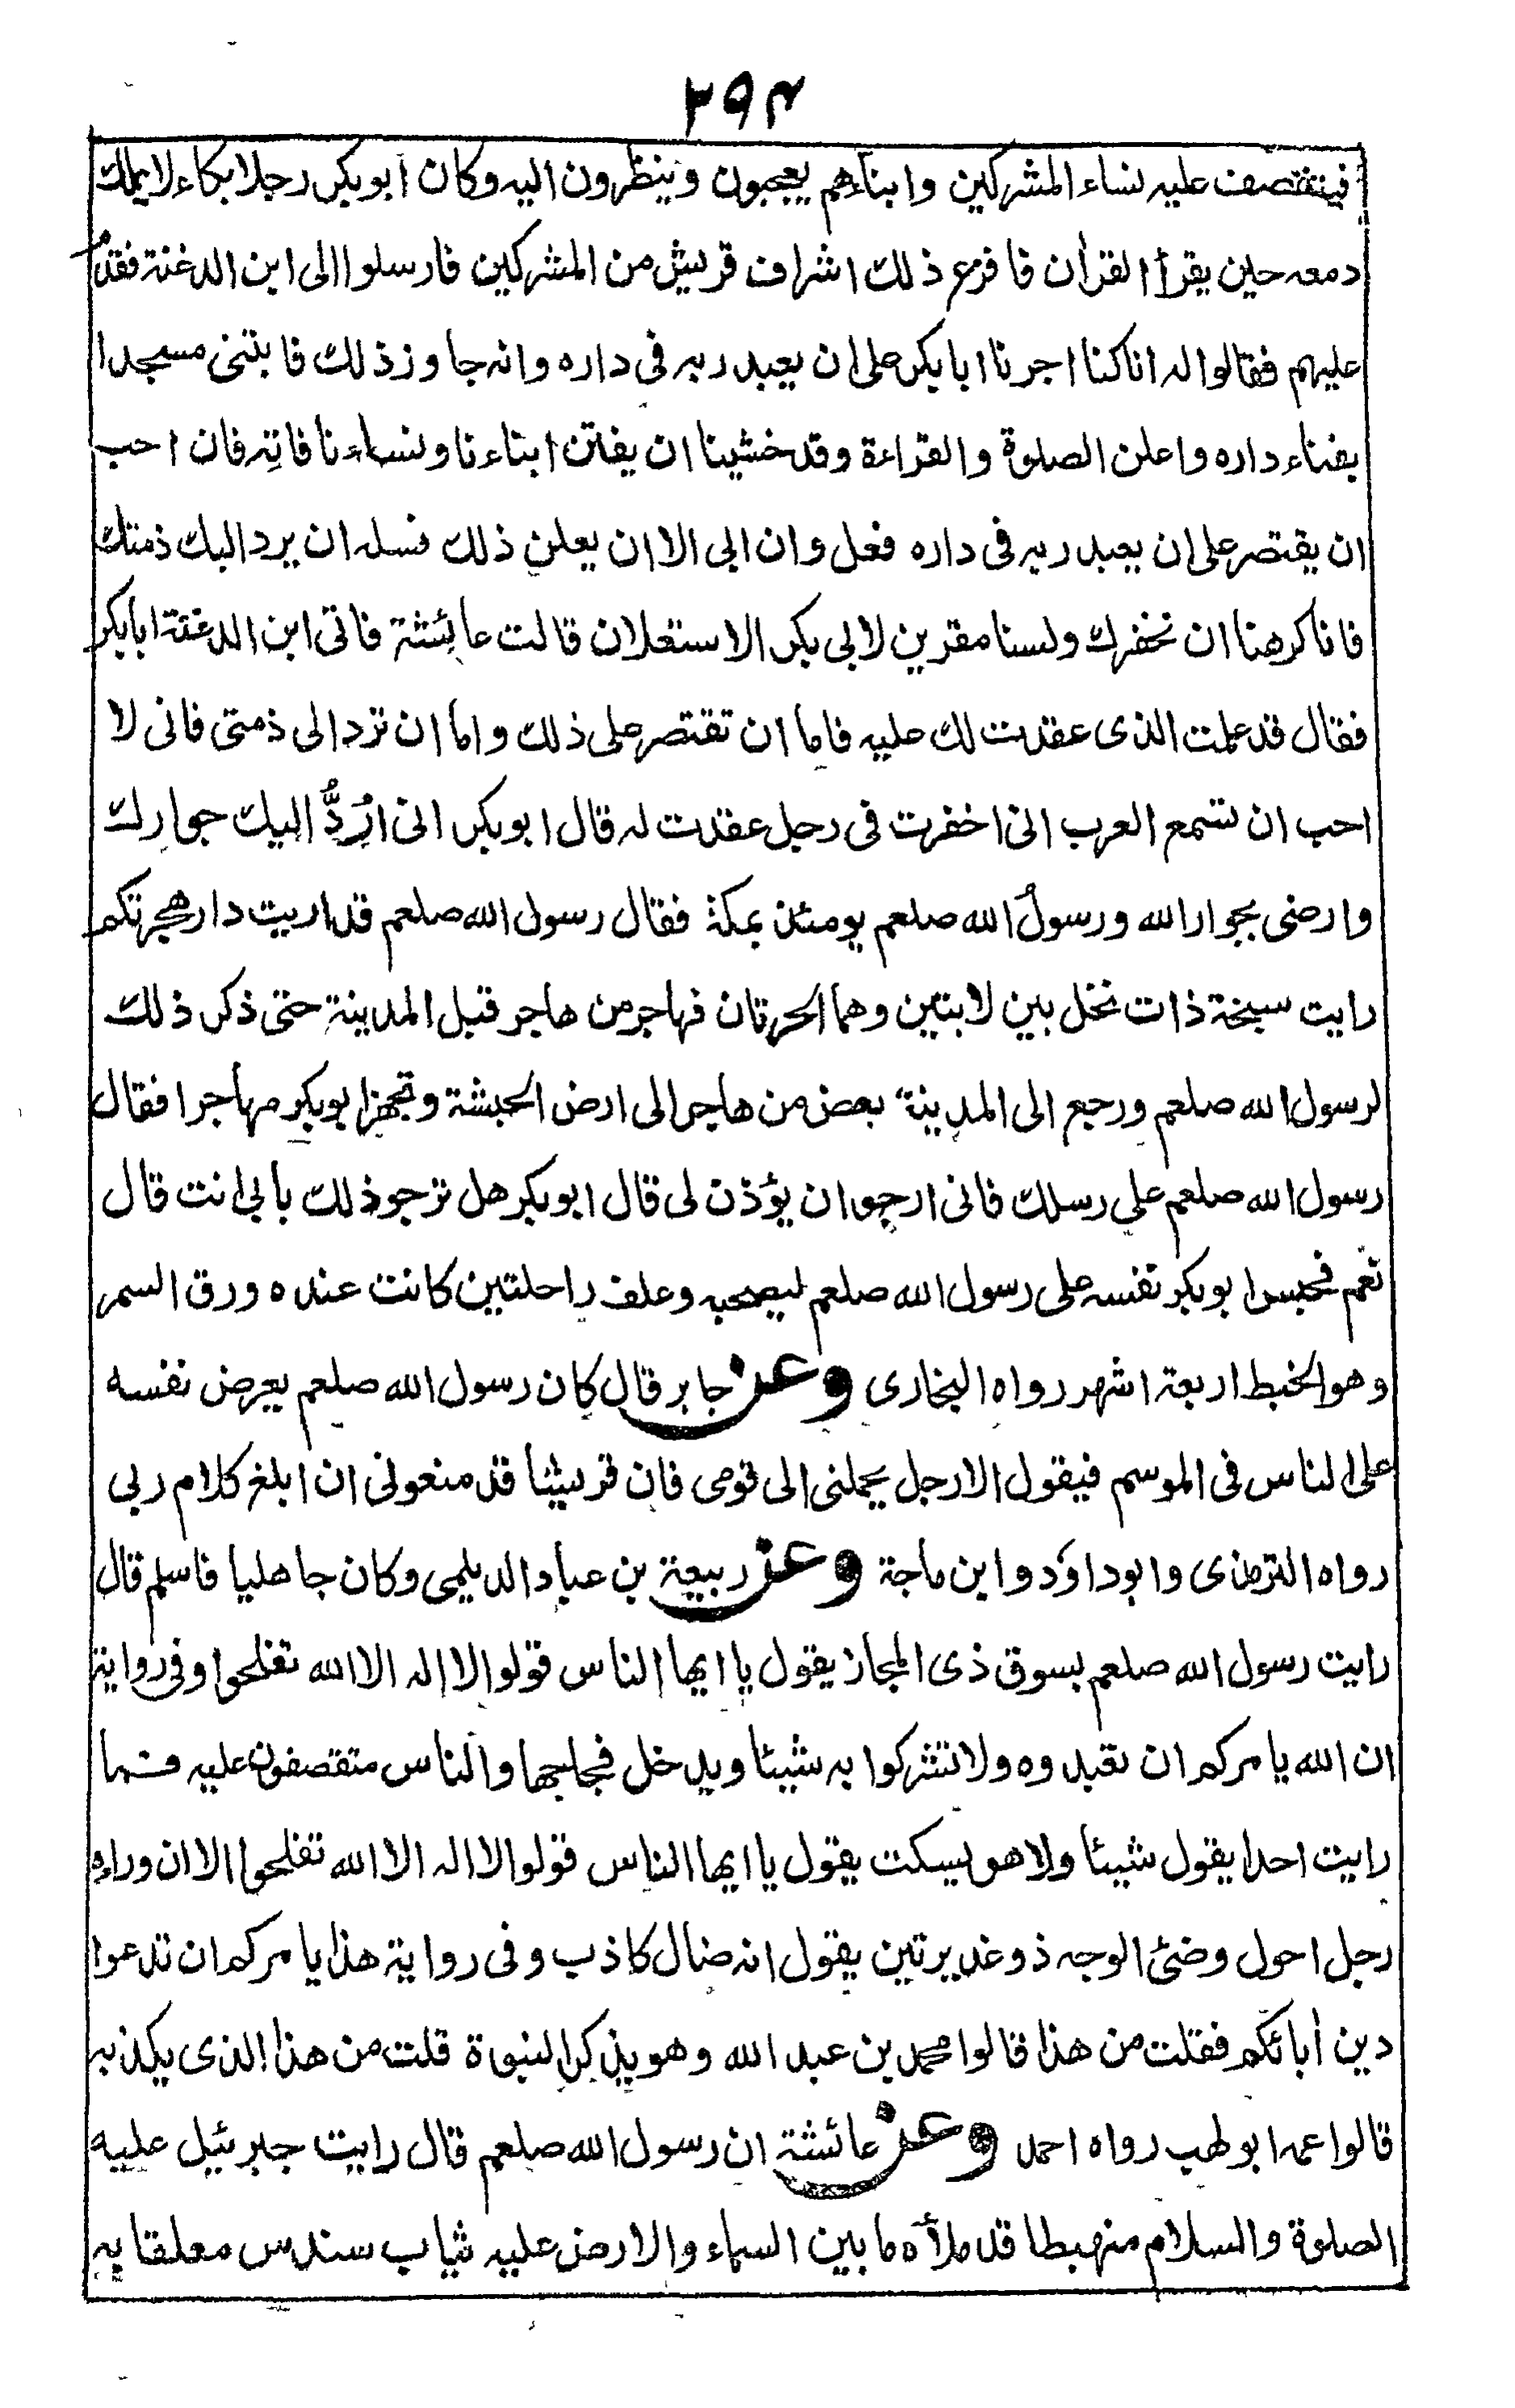 ٢٩٤
فيتقصف عليه نساء المشركين وابناءهم يعجبون وينظرون اليه وكان ابوبكر رجلا بكاء لا يملك
دمعه حين يقرأ القرأن فافزع ذلك اشراف قريش من المشركين فارسلوا الى ابن الدغنة فقدم
عليهم فقالوا له اناكنا اجرنا ابابكر على ان يعبد ربه فى داره وانه جاوز ذلك فابتنى مسجدا
بفناء داره واعلن الصلوة والقراءة وقد خشينا ان يفتن ابناءنا ونساءنا فاته فان احب
ان يقتصر على ان يعبد ربه فى داره فعل وان ابى الا ان يعلن ذلك فسله ان يرد اليك ذمتك
فانا كرهنا ان نخفرك ولسنا مقرين لابى بكر الاستعلان قالت عائشة فاتى ابن الدغنة ابابكر
فقال قد علمت الذى عقدت لك عليه فاما ان تقتصر على ذلك واما ان ترد الى ذمتى فانى لا
احب ان تسمع العرب انى اخفرت فى رجل عقدت له قال ابوبكر انى ارُدُّ اليك جوارك
وارضى بجوار الله ورسولُ الله صلعم يومئذ بمكة فقال رسول الله صلعم قد اريت دار هجرتكم
رايت سبخة ذات نخل بين لابتين وهما الحرتان فهاجر من هاجر قبل المدينة حتى ذكر ذلك
لرسول الله صلعم ورجع الى المدينة بعض من هاجر الى ارض الحبشة وتجهز ابوبكر مهاجرا فقال
رسول الله صلعم على رسلك فانى ارجوا ان يؤذن لى قال ابوبكر هل ترجو ذلك بابى انت قال
نعم فحبس ابوبكر نفسه على رسول الله صلعم ليصحبه وعلف راحلتين كانت عنده ورق السمر
وهو الخبط اربعة اشهر رواه البخارى وعن جابر قال كان رسول الله صلعم يعرض نفسه
على الناس فى الموسم فيقول الا رجل يحملنى الى قومى فان قريشا قد منعونى ان ابلغ كلام ربى
رواه الترمذى وابوداؤد وابن ماجة وعن ربيعة بن عباد الديلمى وكان جاهليا فاسلم قال
رايت رسول الله صلعم بسوق ذى المجاز يقول يا ايها الناس قولوا لا اله الا الله تفلحوا وفى رواية
ان الله يامركم ان تعبدوه ولا تشركوا به شيئا ويدخل فجاجها والناس متقصفون عليه فما
رايت احدا يقول شيئا ولا هو يسكت يقول يا ايها الناس قولوا لا اله الا الله تفلحوا الا ان وراءه
رجل احول وضئ الوجه ذوغديرتين يقول انه ضال كاذب وفى رواية هذا يامركم ان تدعوا
دين أبائكم فقلت من هذا قالوا محمد بن عبد الله وهو يذكر النبوة قلت من هذا الذى يكذبه
قالوا عمه ابو لهب رواه احمد وعن عائشة ان رسول الله صلعم قال رايت جبرئيل عليه
الصلوة والسلام منهبطا قد ملأه ما بين السماء والارض عليه ثياب سندس معلقا به